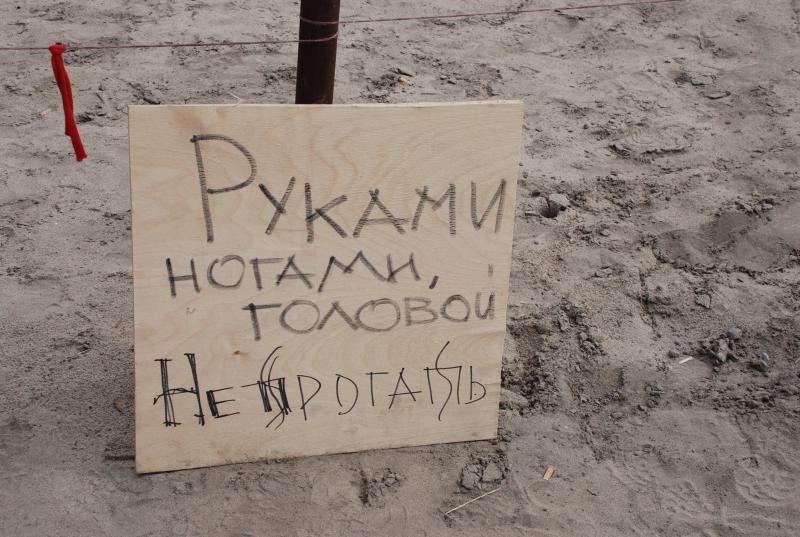 Руками
ногами,
головой
Не трогать